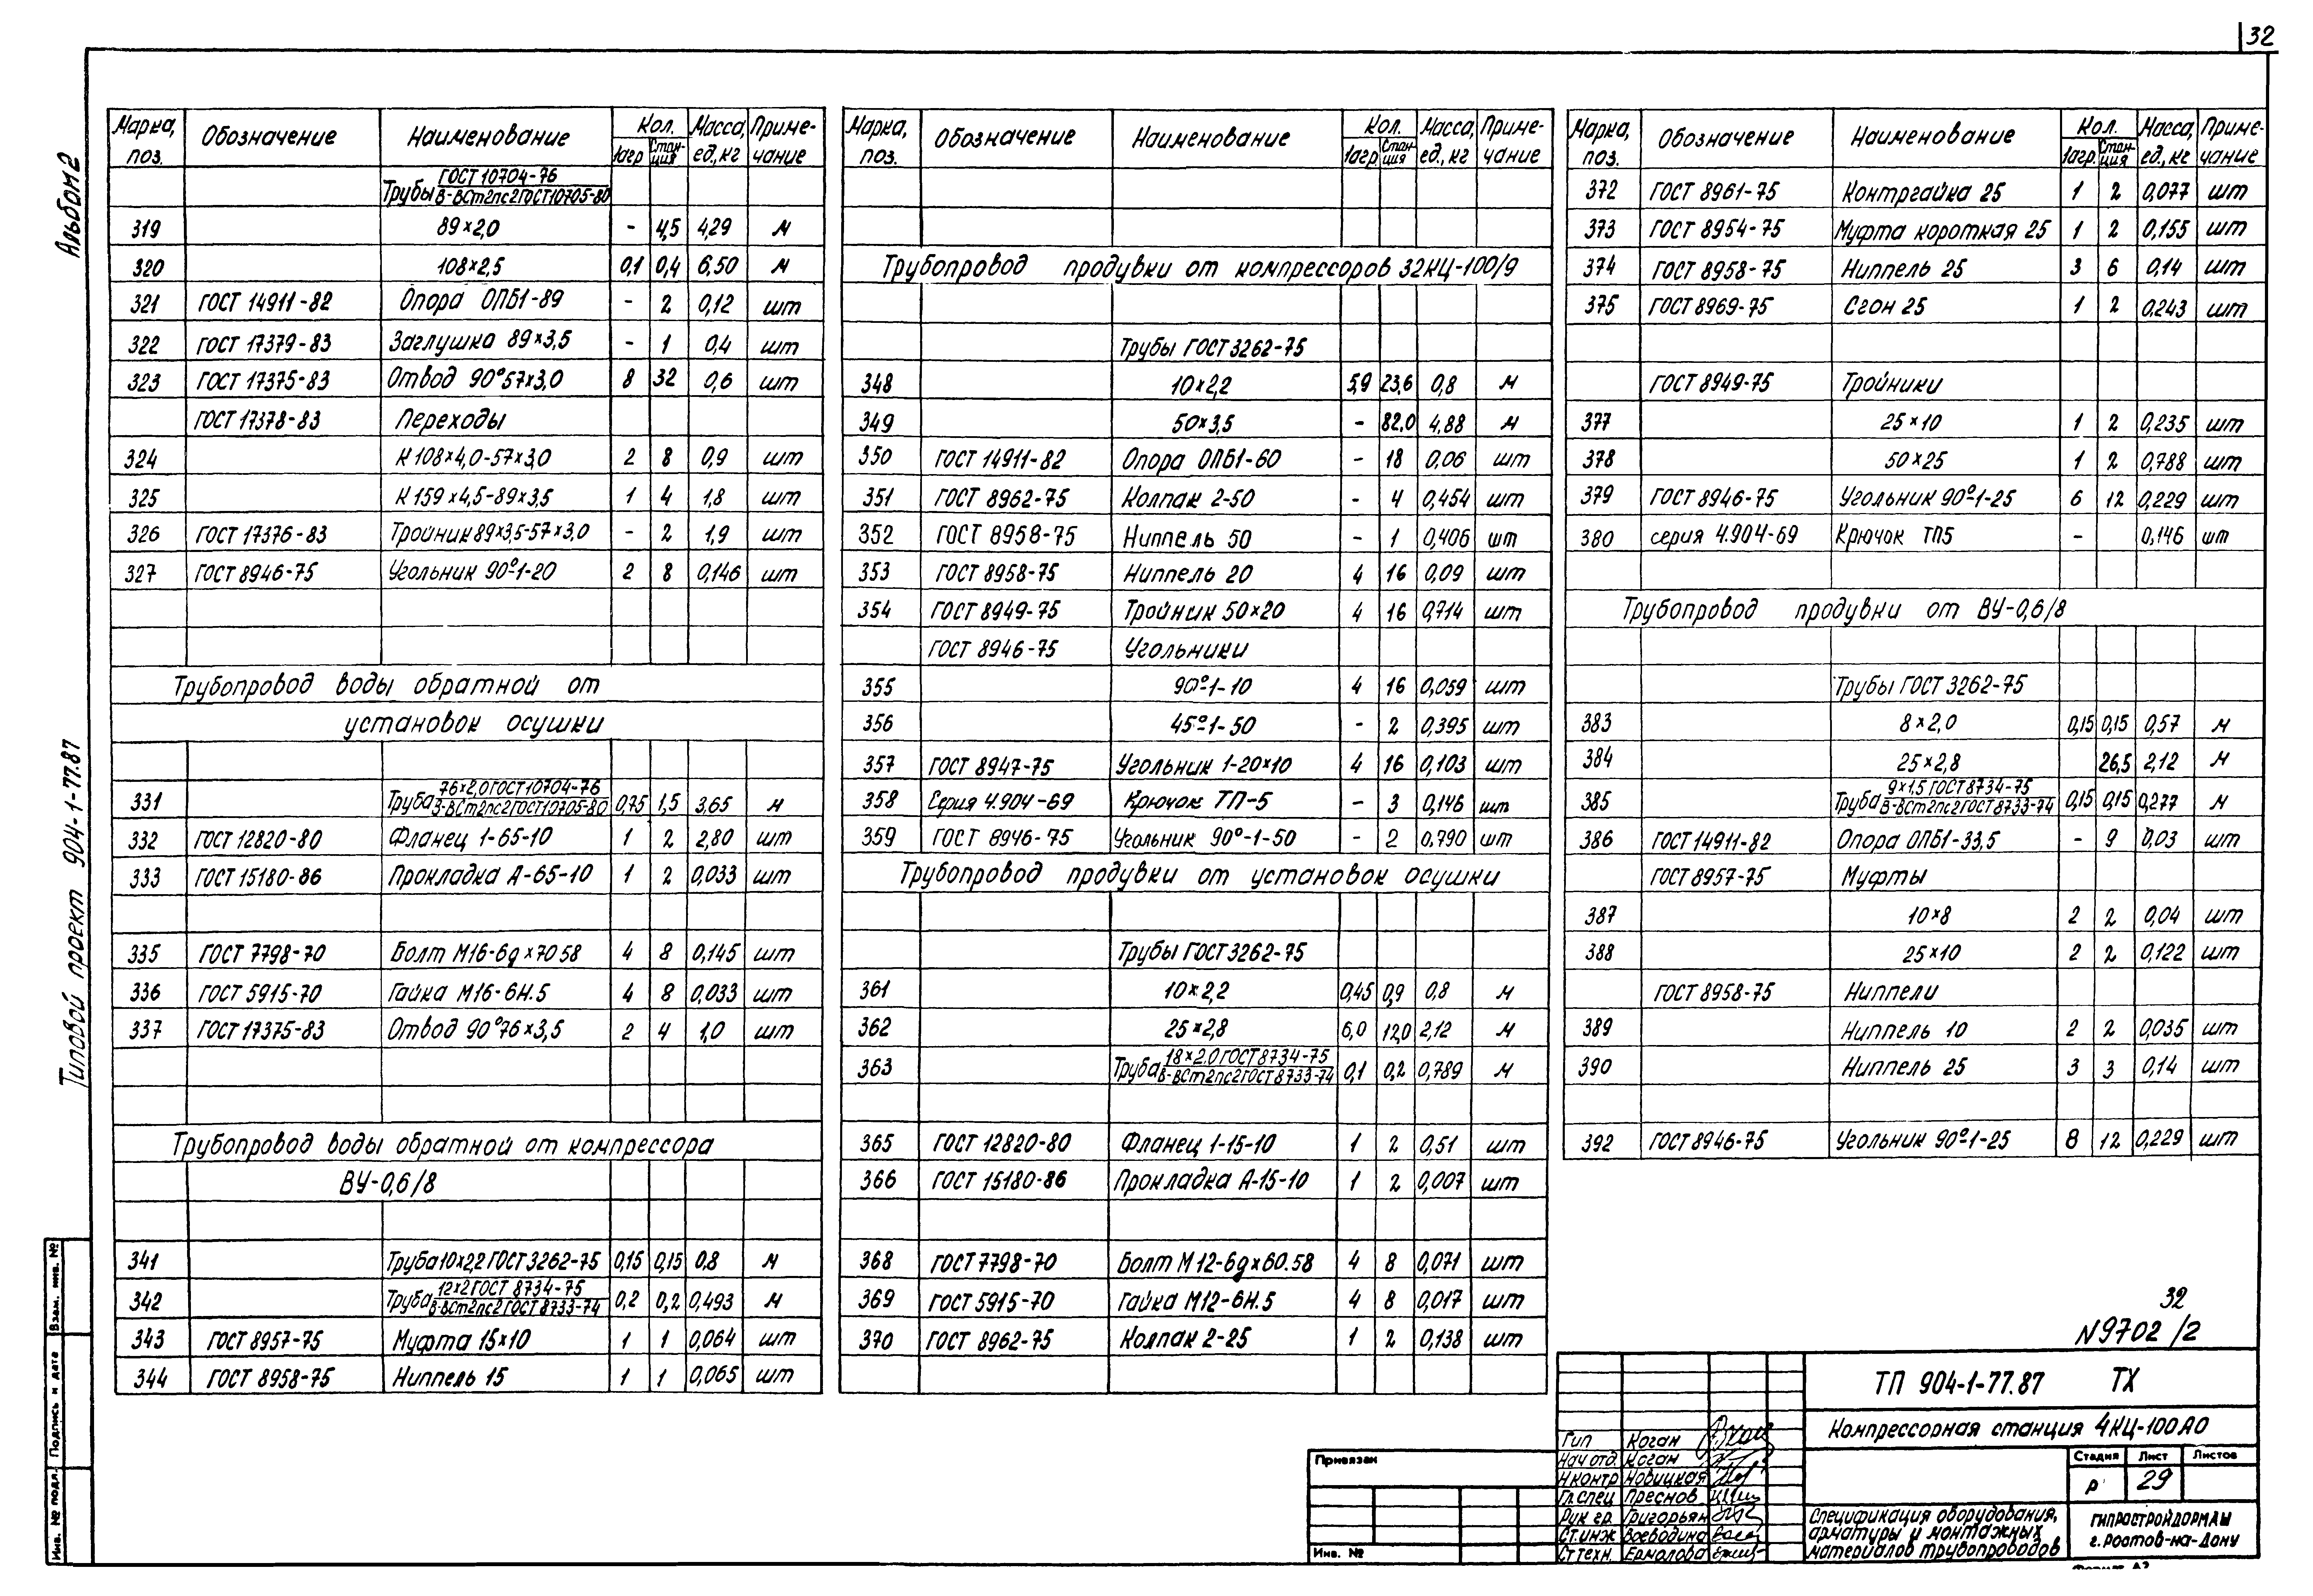 32
Альбом 2
Типовой проект 904-1-77.87
Марка, поз. Обозначение Наименование Кол. 1агр Стан-ция Масса, ед., кг Приме-чание
Трубы ГОСТ 10704-76 / В-ВСт2пс2ГОСТ10705-80
319 89×2,0 - 4,5 4,29 м
320 108×2,5 0,1 0,4 6,50 м
321 ГОСТ 14911-82 Опора ОПБ1-89 - 2 0,12 шт
322 ГОСТ 17379-83 Заглушка 89×3,5 - 1 0,4 шт
323 ГОСТ 17375-83 Отвод 90°57×3,0 8 32 0,6 шт
ГОСТ 17378-83 Переходы
324 К 108×4,0-57×3,0 2 8 0,9 шт
325 К 159×4,5-89×3,5 1 4 1,8 шт
326 ГОСТ 17376-83 Тройник 89×3,5-57×3,0 - 2 1,9 шт
327 ГОСТ 8946-75 Угольник 90°-1-20 2 8 0,146 шт
Трубопровод воды обратной от
установок осушки
331 Труба 76×2,0 ГОСТ10704-76 / В-ВСт2пс2ГОСТ10705-80 0,75 1,5 3,65 м
332 ГОСТ 12820-80 Фланец 1-65-10 1 2 2,80 шт
333 ГОСТ 15180-86 Прокладка А-65-10 1 2 0,033 шт
335 ГОСТ 7798-70 Болт М16-6g×70 58 4 8 0,145 шт
336 ГОСТ 5915-70 Гайка М16-6Н.5 4 8 0,033 шт
337 ГОСТ 17375-83 Отвод 90°76×3,5 2 4 1,0 шт
Трубопровод воды обратной от компрессора
ВУ-0,6/8
341 Труба 10×2,2 ГОСТ 3262-75 0,15 0,15 0,8 м
342 Труба 12×2 ГОСТ 8734-75 / В-ВСт2пс2 ГОСТ 8733-74 0,2 0,2 0,493 м
343 ГОСТ 8957-75 Муфта 15×10 1 1 0,064 шт
344 ГОСТ 8958-75 Ниппель 15 1 1 0,065 шт
Марка, поз. Обозначение Наименование Кол. 1агр. Стан-ция Масса, ед., кг Приме-чание
Трубопровод продувки от компрессоров 32КЦ-100/9
Трубы ГОСТ 3262-75
348 10×2,2 5,9 23,6 0,8 м
349 50×3,5 - 82,0 4,88 м
350 ГОСТ 14911-82 Опора ОПБ1-60 - 18 0,06 шт
351 ГОСТ 8962-75 Колпак 2-50 - 4 0,454 шт
352 ГОСТ 8958-75 Ниппель 50 - 1 0,406 шт
353 ГОСТ 8958-75 Ниппель 20 4 16 0,09 шт
354 ГОСТ 8949-75 Тройник 50×20 4 16 0,714 шт
ГОСТ 8946-75 Угольники
355 90°-1-10 4 16 0,059 шт
356 45°-1-50 - 2 0,395 шт
357 ГОСТ 8947-75 Угольник 1-20×10 4 16 0,103 шт
358 Серия 4.904-69 Крючок ТП-5 - 3 0,146 шт
359 ГОСТ 8946-75 Угольник 90°-1-50 - 2 0,790 шт
Трубопровод продувки от установок осушки
Трубы ГОСТ 3262-75
361 10×2,2 0,45 0,9 0,8 м
362 25×2,8 6,0 12,0 2,12 м
363 Труба 18×2,0 ГОСТ 8734-75 / В-ВСт2пс2ГОСТ 8733-74 0,1 0,2 0,789 м
365 ГОСТ 12820-80 Фланец 1-15-10 1 2 0,51 шт
366 ГОСТ 15180-86 Прокладка А-15-10 1 2 0,007 шт
368 ГОСТ 7798-70 Болт М12-6g×60.58 4 8 0,071 шт
369 ГОСТ 5915-70 Гайка М12-6Н.5 4 8 0,017 шт
370 ГОСТ 8962-75 Колпак 2-25 1 2 0,138 шт
Марка, поз. Обозначение Наименование Кол. 1агр. Стан-ция Масса, ед., кг Приме-чание
372 ГОСТ 8961-75 Контргайка 25 1 2 0,077 шт
373 ГОСТ 8954-75 Муфта короткая 25 1 2 0,155 шт
374 ГОСТ 8958-75 Ниппель 25 3 6 0,14 шт
375 ГОСТ 8969-75 Сгон 25 1 2 0,243 шт
ГОСТ 8949-75 Тройники
377 25×10 1 2 0,235 шт
378 50×25 1 2 0,788 шт
379 ГОСТ 8946-75 Угольник 90°-1-25 6 12 0,229 шт
380 серия 4.904-69 Крючок ТП5 - 0,146 шт
Трубопровод продувки от ВУ-0,6/8
Трубы ГОСТ 3262-75
383 8×2,0 0,15 0,15 0,57 м
384 25×2,8 26,5 2,12 м
385 Труба 9×1,5 ГОСТ 8734-75 / В-ВСт2пс2ГОСТ 8733-74 0,15 0,15 0,277 м
386 ГОСТ 14911-82 Опора ОПБ1-33,5 - 9 0,03 шт
ГОСТ 8957-75 Муфты
387 10×8 2 2 0,04 шт
388 25×10 2 2 0,122 шт
ГОСТ 8958-75 Ниппели
389 Ниппель 10 2 2 0,035 шт
390 Ниппель 25 3 3 0,14 шт
392 ГОСТ 8946-75 Угольник 90°-1-25 8 12 0,229 шт
32
N9702/2
ТП 904-1-77.87 ТХ
Компрессорная станция 4КЦ-100АО
Гип Коган
Нач отд. Коган
Н контр Новицкая
Гл. спец Преснов
Рук гр. Григорьян
Ст. инж Воеводина
Ст техн. Ермолова
Стадия Лист Листов
Р 29
Спецификация оборудования, арматуры и монтажных материалов трубопроводов
ГИПРОСТРОЙДОРМАШ
г. Ростов-на-Дону
Привязан
Инв. №
Взам. инв. №
Подпись и дата
Инв. № подл.